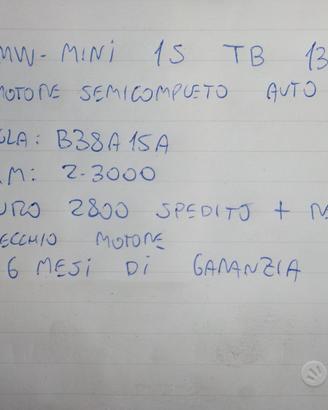 MW-MINI 15 TB 13
MOTORE SEMICOMPLETO AUTO
GLA: B38A15A
.M: 2-3000
URO 2800 SPEDITO +
ECCHIO MOTORE
6 MESI DI GARANZIA